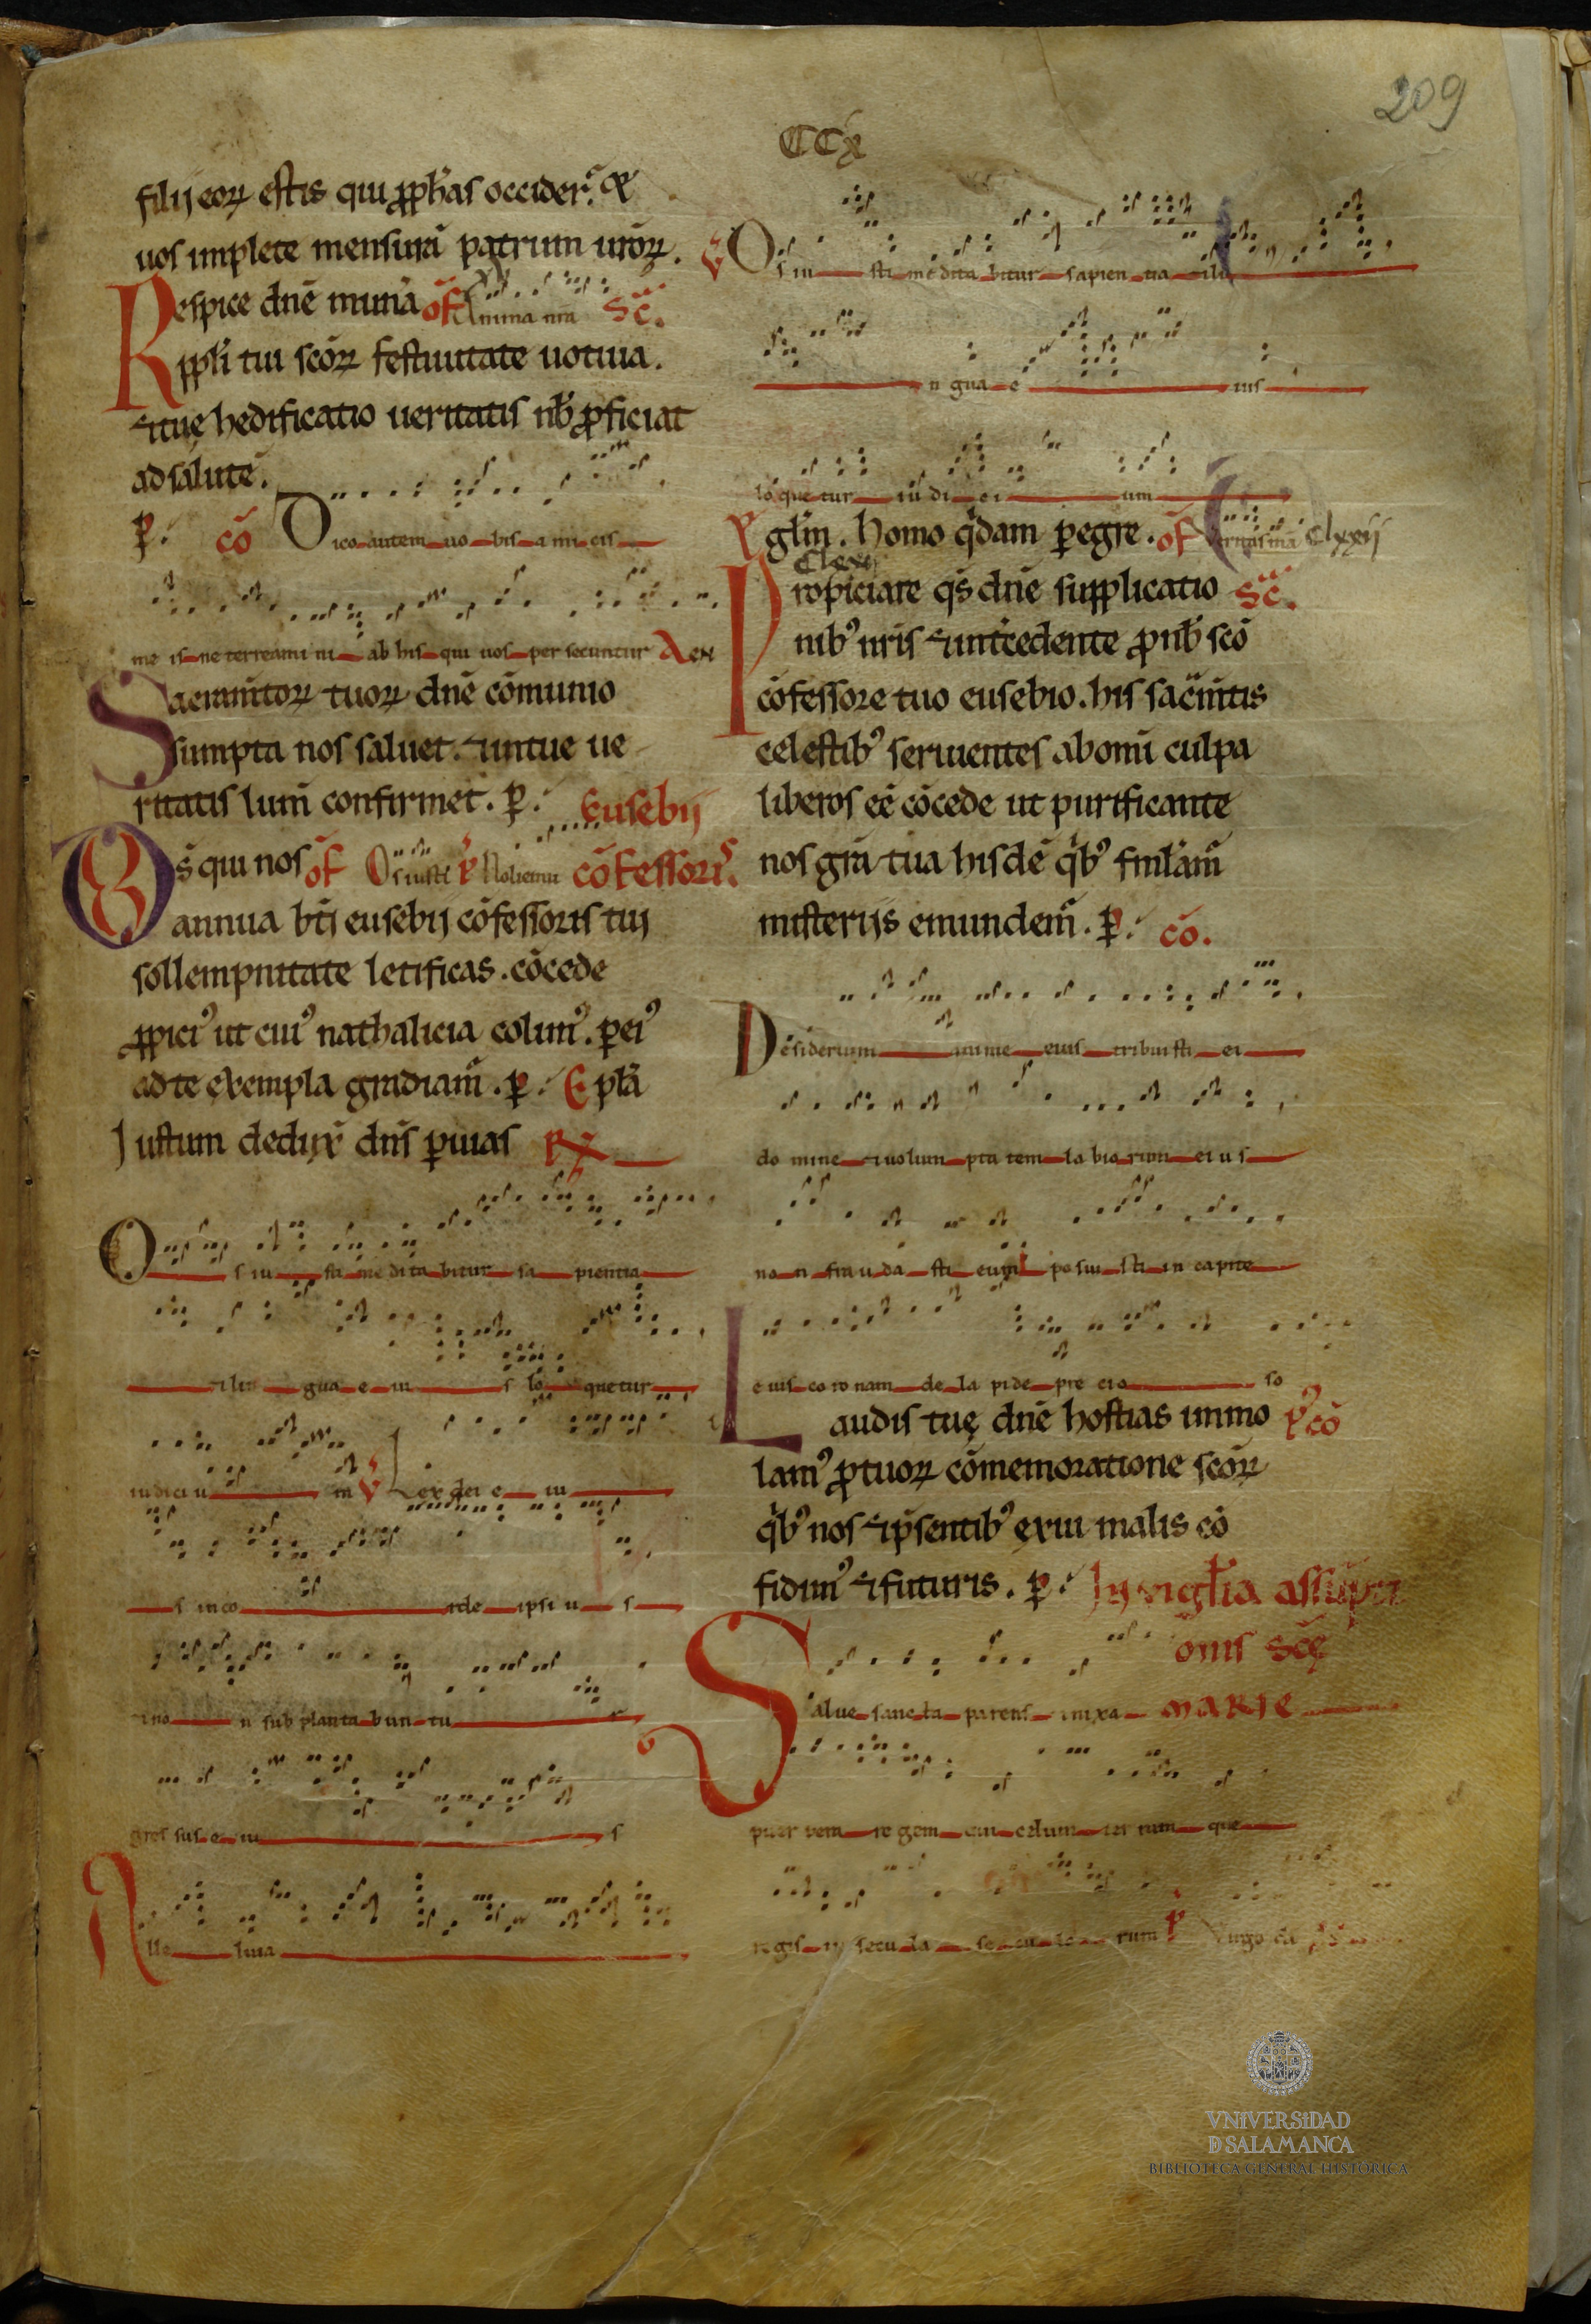 209
CCX
filij eoꝝ estis qui ꝓph̃as occider̃. &
uos implete mensurã patrum ur̃oꝝ.
Respice dñe munã of̃ Anima nr̃a Sc̃.
ppl̃i tui sc̃oꝝ festiuitate uotiua.
⁊ tuę hedificatio ueritatis nb̃ ꝓficiat
ad salutẽ.
ꝑ. cõ Dico autem uo bis a mi cis
me is ne terreami ni ab his qui uos per secuntur A ex
Sacram̃toꝝ tuoꝝ dñe cõmunio
sumpta nos saluet. ⁊ in tue ue
ritatis lum̃ confirmet. ꝑ. Eusebij
Ds̃ qui nos of̃ Os iusti Noli emu cõfessoris.
annua bt̃i eusebij cõfessoris tuj
sollempnitate letificas. cõcede
ꝓpiciꝰ ut cuiꝰ nathalicia colimꝰ. ꝑ eiꝰ
ad te exempla gradiam̃. ꝑ. Epl̃a
Justum deduxͥ dñs ꝑ uias
Os iu sti me di ta bitur sa pientia
⁊ lin gua e iu s lo quetur
iudiciu m V Lex dei e iu
s in co rde ipsi u s
⁊ no n sub planta bun tu r
gres sus e iu s
Alle luia
V Os iu sti me dita bitur sapien tia ⁊ li
n gua e ius
lo que tur iu di ci um
gl̃m. homo qͥdam ꝑegre. of̃ Veritas mã Clxxij
Propiciare qs̃ dñe supplicatio Sc̃.
nibꝰ nr̃is ⁊ int̾cedente ꝓ nb̃ sc̃o
cõfessore tuo eusebio. his sac̃m̃tis
celestibꝰ seruientes ab om̃i culpa
liberos eẽ cõcede ut purificante
nos gr̃a tua hisdẽ qͥbꝰ fml̃am̃
misterijs emundem̃. ꝑ. cõ.
Desiderium anime eius tribuisti ei
do mine ⁊ uolun pta tem la bio rum ei u s
no n frau da sti eum posui sti in capite
e ius co ro nam de la pide pre cio so
Laudis tuę dñe hostias immo cõ
lamꝰ ꝓ tuoꝝ cõmemoratione sc̃oꝝ
qͥbꝰ nos ⁊ p̃sentibꝰ exui malis cõ
fidimꝰ ⁊ futuris. ꝑ. In vigl̃ia assũpti
onis Sc̃ę
Salue sanc ta parens enixa MARIE
puer pera re gem cui celum ter ram que
regis in secu la se cu lo rum Virgo
VNIVERSIDAD
D SALAMANCA
BIBLIOTECA GENERAL HISTÓRICA